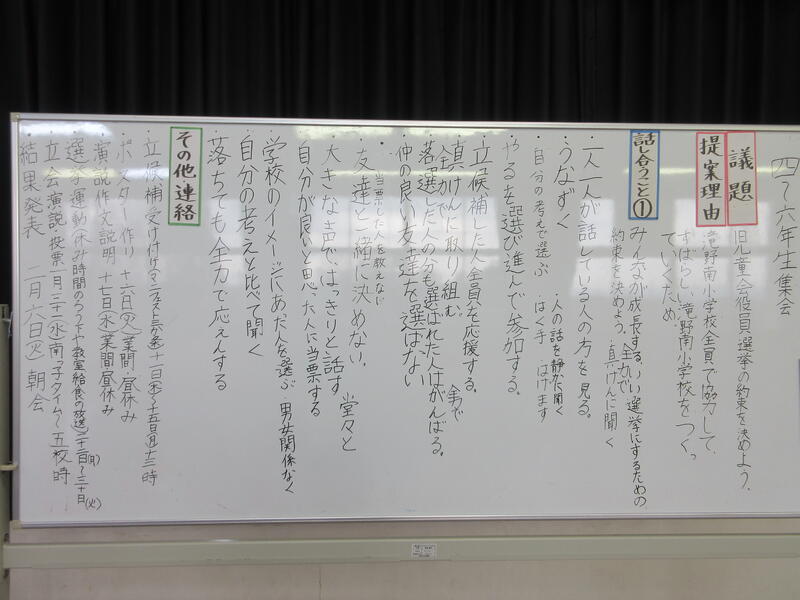 四～六年生集会
議題
旧児童会役員選挙の約束を決めよう。
提案理由
滝野南小学校全員で協力して、
すばらしい滝野南小学校をつくっ
ていくため。
話し合うこと①
みんなが成長する、いい選挙にするための
約束を決めよう。
・全力で
・真けんに聞く
・一人一人が話している人の方を見る。
・うなずく
・人の話を静かに聞く
・自分の考えで選ぶ
・はく手
・はげます
・やる気を選び進んで参加する。
・立候補した人全員を応援する。
・真けんに取り組む。
全力で
・落選した人の分も選ばれた人はがんばる。
・仲の良い友達を選ばない
・当票した人を教えない
・友達と一緒に決めない。
・大きな声で、はっきりと話す
堂々と
・自分が良いと思った人に当票する
・学校のイメージにあった人を選ぶ
・男女関係なく
・自分の考えと比べて聞く
・落ちても全力で応えんする
その他・連絡
・立候補受け付け(マニフェスト
・ポスター作り 十六日(火)業間・昼休み
・演説作文説明 十七日(水)業間昼休み
・選挙運動(休み時間のろう下や教室給食の放送)
・立会演説・投票 一月三十一(水)南っ子タイム～五校時
・結果発表 二月六日(火)朝会